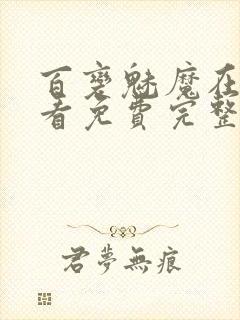 百变魅魔在
看免費完整
君夢無痕